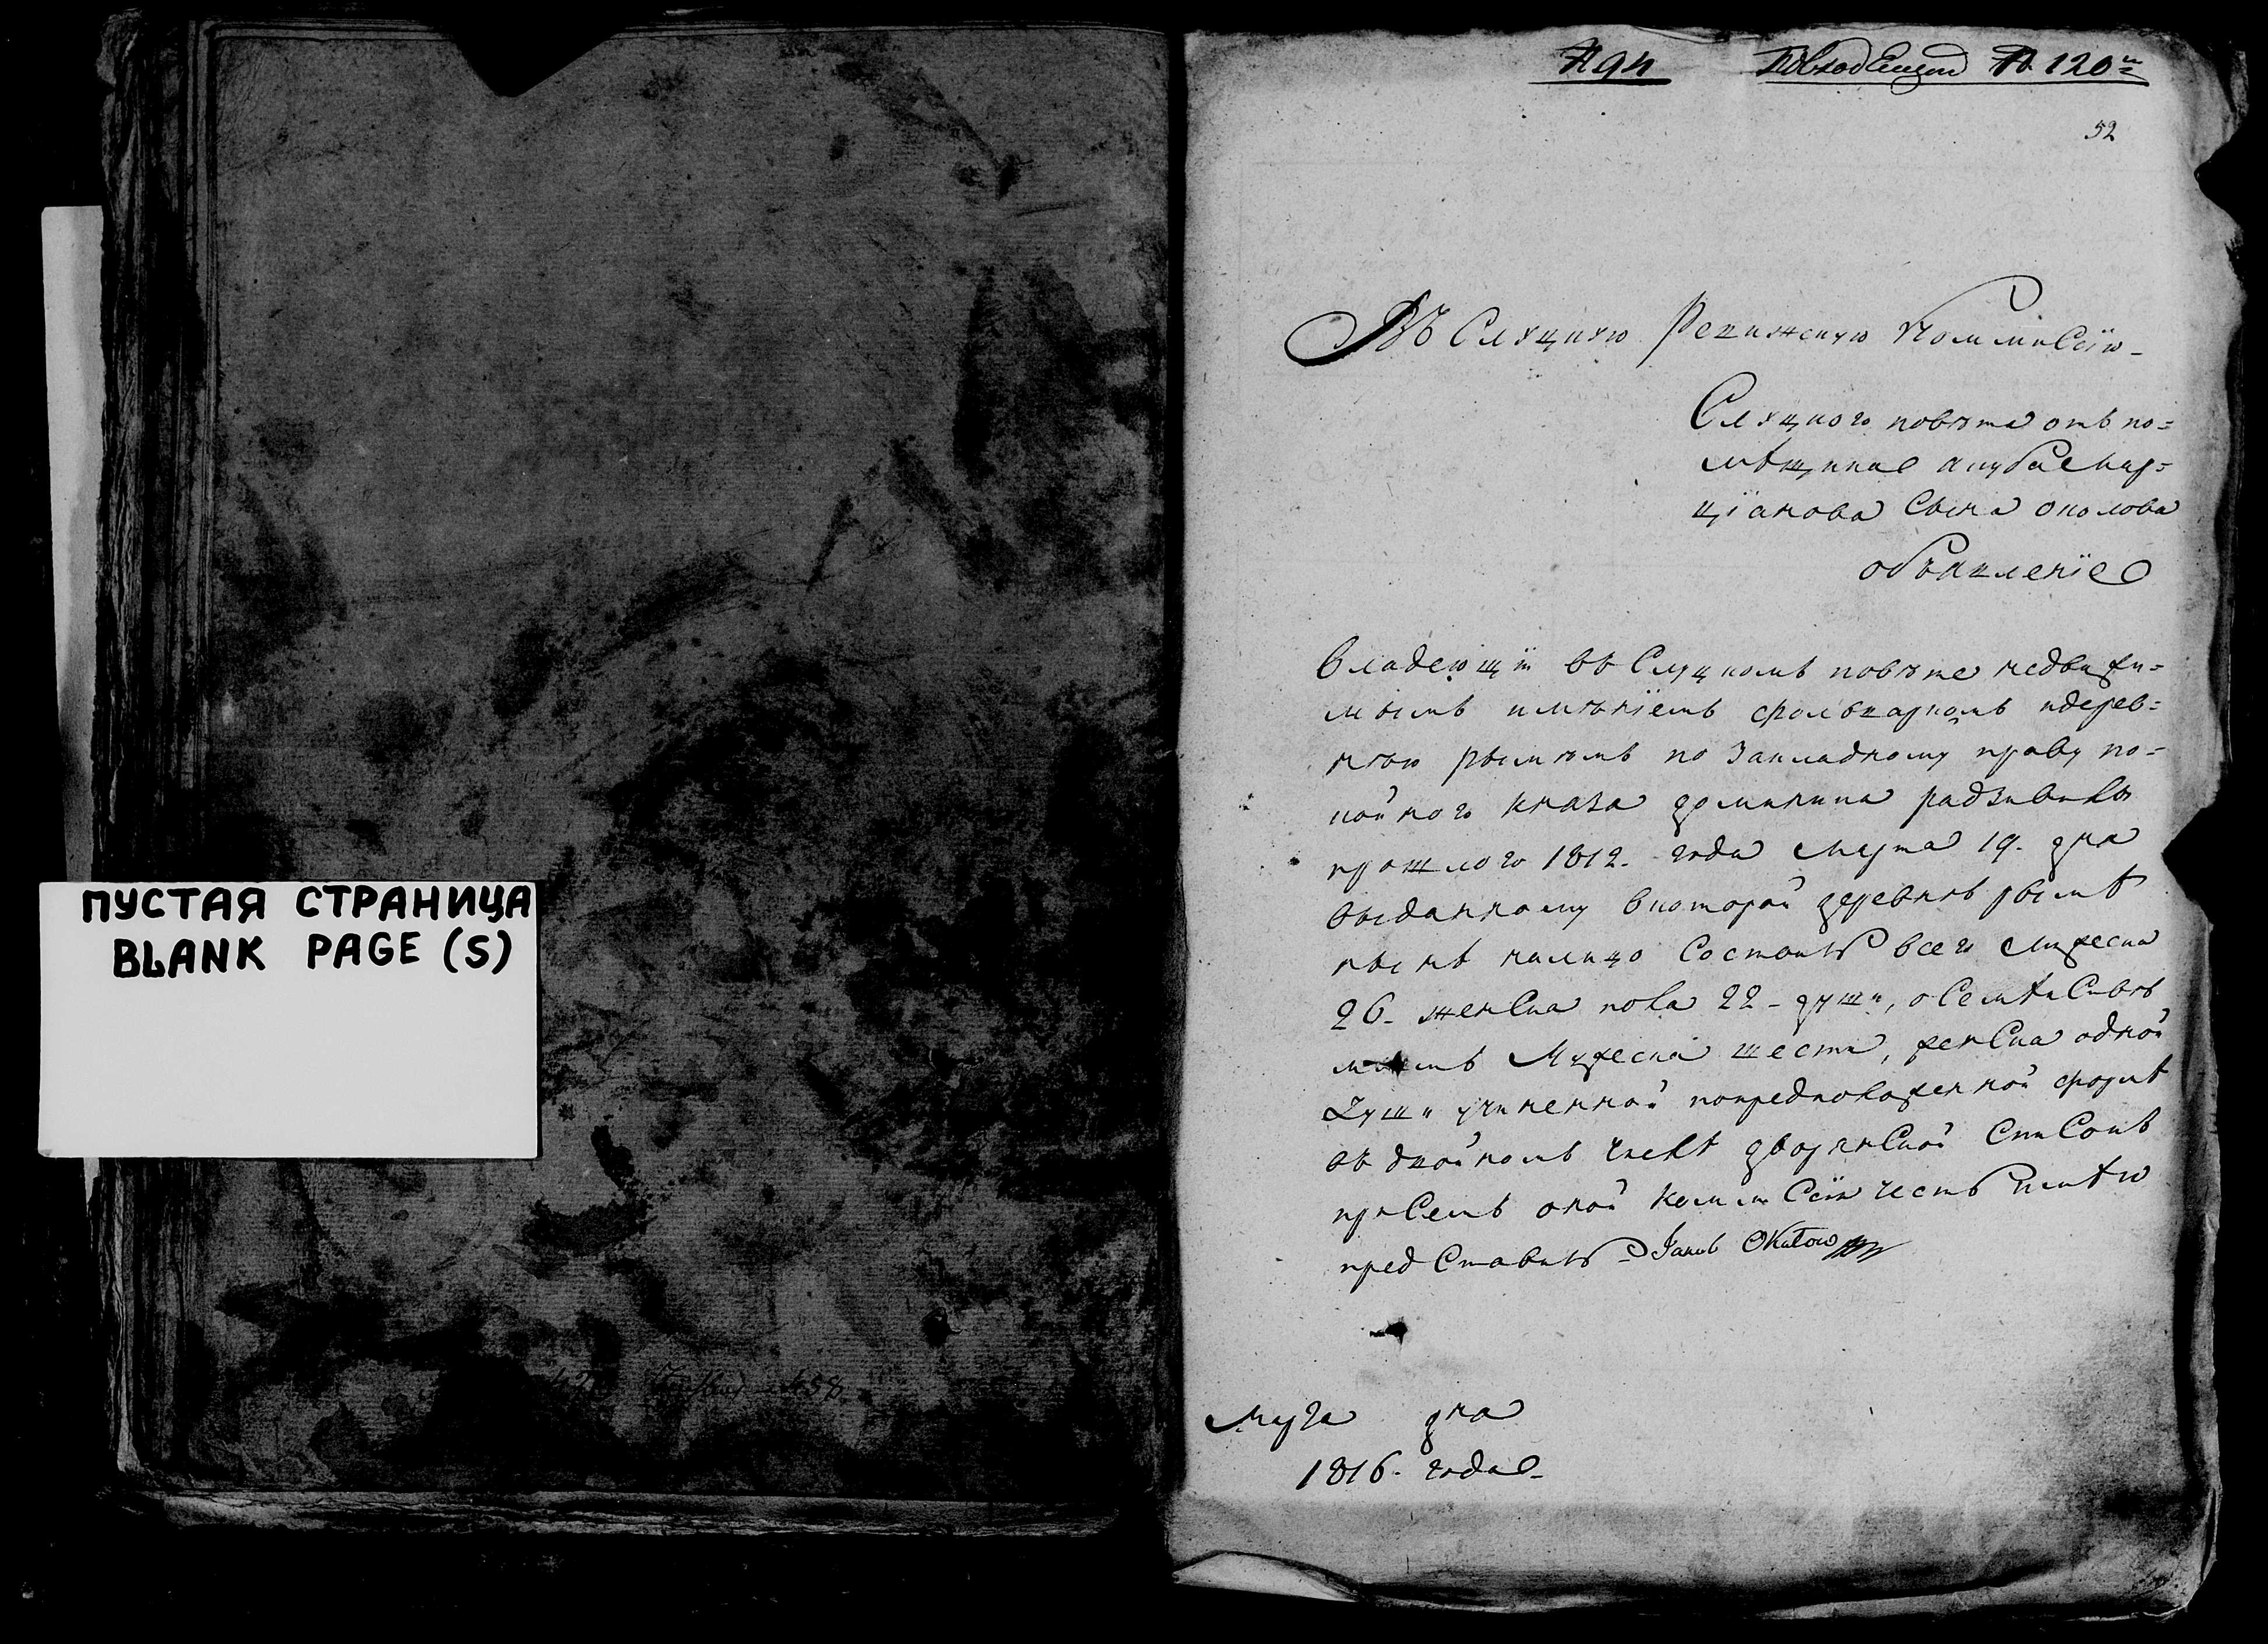 ПУСТАЯ СТРАНИЦА
BLANK PAGE (S)
№ 94 По входящей № 120
52
Въ Слуцкую Ревижскую Коммисѣю
Слуцкого повѣта отъ по=
мѣщика Якуба Мар=
цїанова сына Околова
объявленїе
Владеющїй въ Слуцкомъ повѣте недвижи=
мымъ имѣнїемъ фольваркомъ и дерев=
нѣю Рымѣмъ по закладному праву по=
койного князя Доминика Радзивилы
прошлого 1812. года Марта 19. дня
выданному в которой деревнѣ Рымѣ
нынѣ налицо состоитъ всего мужеска
26. женска пола 22 - души, о семѣйствѣ
моемъ мужеска шести, женска одной
души учиненной по предположенной формѣ
въ двойномъ числѣ дворянской списокъ
при семъ оной коммисїи честь имѣю
представить Якубъ Okułow
Марта дня
1816. года